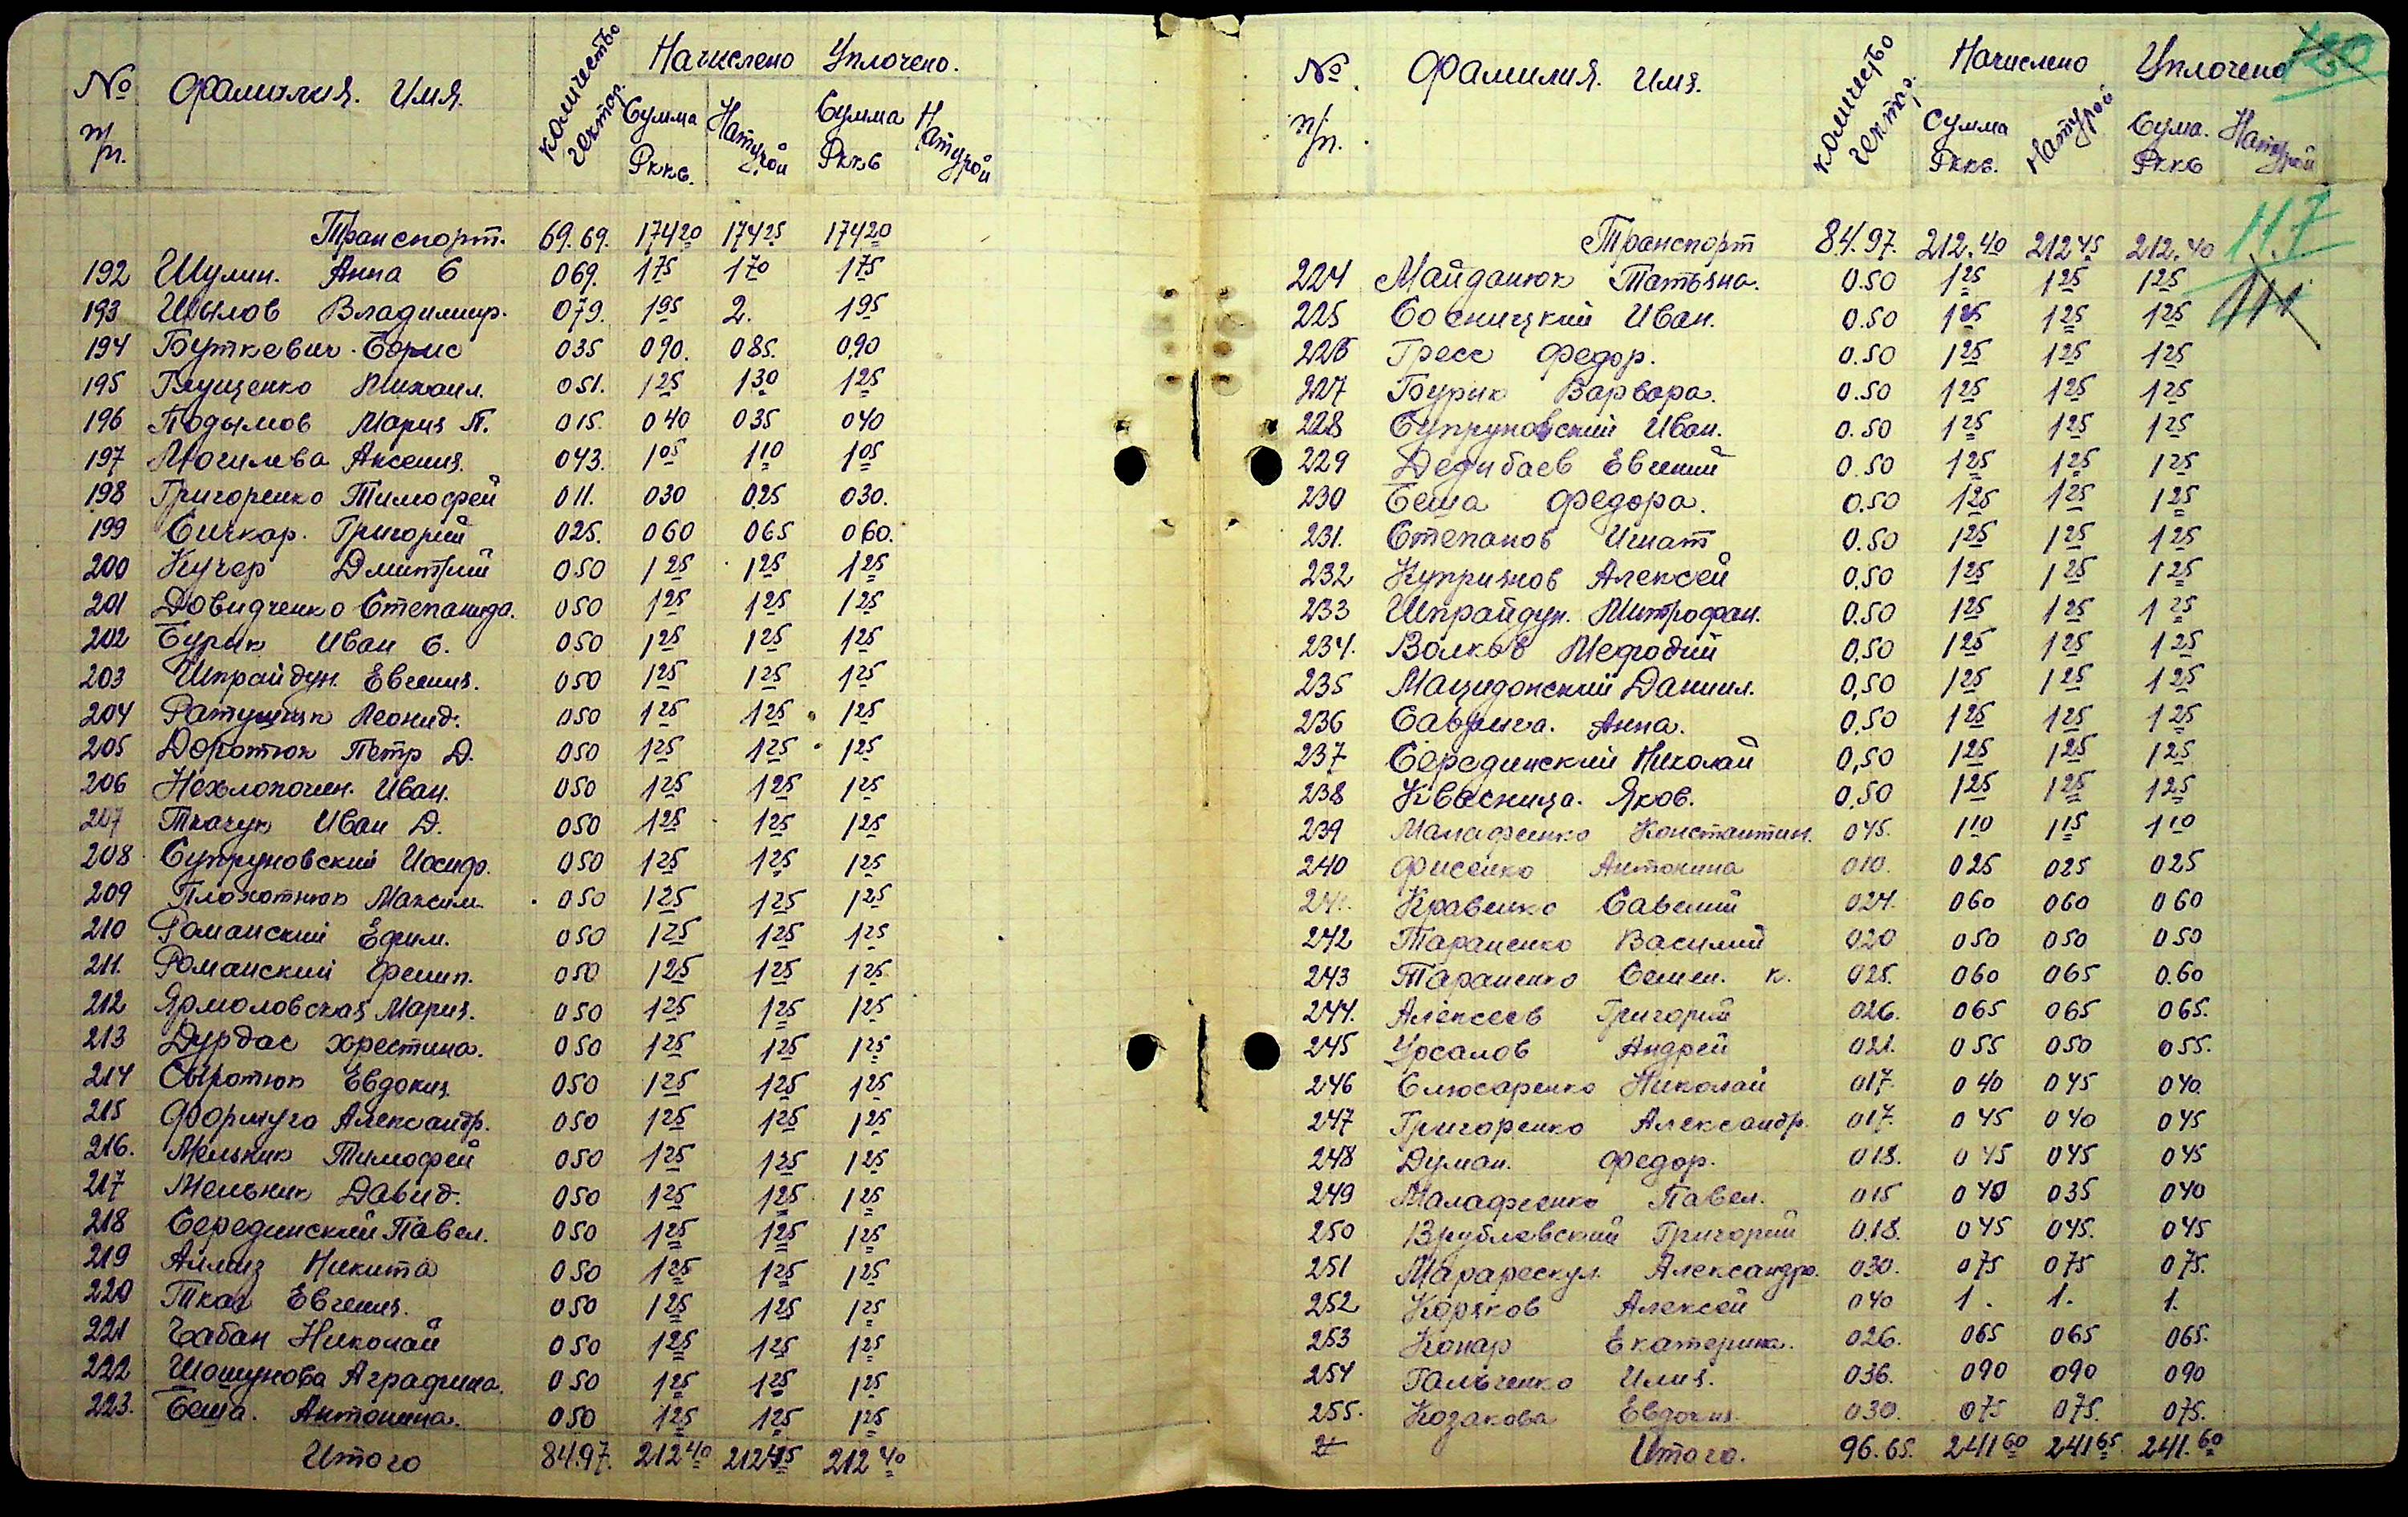 № п/п. Фамилия. Имя. количество гектар. Начислено Уплочено.
Сумма Рккв. Натурой Сумма Рккв Натурой
Транспорт. 69.69. 174 20 174 25 174 20
192 Шулин. Анна С 069. 1 75 1 70 1 75
193 Шылов Владимир. 079. 1 95 2. 1 95
194 Буткевич Борис 035 090. 085. 0.90
195 Глущенко Михаил. 051. 1 25 1 30 1 25
196 Подымов Мария П. 015. 040 035 040
197 Могилева Аксения. 043. 1 05 1 10 1 05
198 Григоренко Тимофей 011. 030 025 030.
199 Сичкар. Григорий 025. 060 065 060.
200 Кучер Дмитрий 050 1 25 1 25 1 25
201 Довидченко Степанида. 050 1 25 1 25 1 25
202 Бурик Иван С. 050 1 25 1 25 1 25
203 Шпрайдун. Евгения. 050 1 25 1 25 1 25
204 Леонид. 050 1 25 1 25 1 25
205 Доротюк Петр Д. 050 1 25 1 25 1 25
206 Нехлопочин. Иван. 050 1 25 1 25 1 25
207 Ткачук Иван Д. 050 1 25 1 25 1 25
208 Супруновский Иосиф. 050 1 25 1 25 1 25
209 Плохотнюк Максим. 050 1 25 1 25 1 25
210 Романский Ефим. 050 1 25 1 25 1 25
211. Романский Филип. 050 1 25 1 25 1 25
212 Ярмоловская Мария. 050 1 25 1 25 1 25
213 Дурдас Христина. 050 1 25 1 25 1 25
214 Сыротюк Евдокия. 050 1 25 1 25 1 25
215 Формуга Александр. 050 1 25 1 25 1 25
216. Мельник Тимофей 050 1 25 1 25 1 25
217 Мельник Давид. 050 1 25 1 25 1 25
218 Серединский Павел. 050 1 25 1 25 1 25
219 Никита 050 1 25 1 25 1 25
220 Ткач Евгения. 050 1 25 1 25 1 25
221 Чабан Николай 050 1 25 1 25 1 25
222 Шошунова Аграфина. 050 1 25 1 25 1 25
223. Беша. Антонина. 050 1 25 1 25 1 25
Итого 84.97. 212 40 212 45 212 40
120
№ п/п. Фамилия. Имя. количество гектар. Начислено Уплочено
Сумма Рккв. Натурой Сума. Рккв Натурой
Транспорт 84.97. 212.40 212 45 212.40
117
224 Майданюк Татьяна. 0.50 1 25 1 25 1 25
225 Сосницкий Иван. 0.50 1 25 1 25 1 25
226 Гресс Федор. 0.50 1 25 1 25 1 25
227 Бурик Варвара. 0.50 1 25 1 25 1 25
228 Супруновский Иван. 0.50 1 25 1 25 1 25
229 Дедибаев Евгений 0.50 1 25 1 25 1 25
230 Беша Федора. 0.50 1 25 1 25 1 25
231. Степанов Игнат 0.50 1 25 1 25 1 25
232 Куприянов Алексей 0.50 1 25 1 25 1 25
233 Шпрайдун. Митрофан. 0.50 1 25 1 25 1 25
234. Волков Мефодий 0.50 1 25 1 25 1 25
235 Мацидонский Даниил. 0,50 1 25 1 25 1 25
236 Саврига. Анна. 0.50 1 25 1 25 1 25
237 Серединский Николай 0,50 1 25 1 25 1 25
238 Квасница. Яков. 0.50 1 25 1 25 1 25
239 Малафеенко Константин. 045. 1 10 1 15 1 10
240 Фисенко Антонина 010. 025 025 025
241. Кравенко Савелий 024. 060 060 060
242 Тараненко Василий 020 050 050 050
243 Тараненко Семен. К. 025. 060 065 0.60
244. Алексеев Григорий 026. 065 065 065.
245 Урсалов Андрей 021. 055 050 055.
246 Слюсаренко Николай 017. 040 045 040.
247 Григоренко Александр. 017. 045 040 045
248 Думан. Федор. 018. 045 045 045
249 Малафеенко Павел. 015 040 035 040
250 Врублевский Григорий 0.18. 045 045. 045
251 Марарескул. Александр. 030. 075 075 075.
252 Коряков Алексей 040 1. 1. 1.
253 Конар Екатерина. 026. 065 065 065.
254 Гальченко Илия. 036. 090 090 090
255. Козакова Евдокия. 030. 075 075. 075.
Итого. 96.65. 241 60 241 65. 241. 60